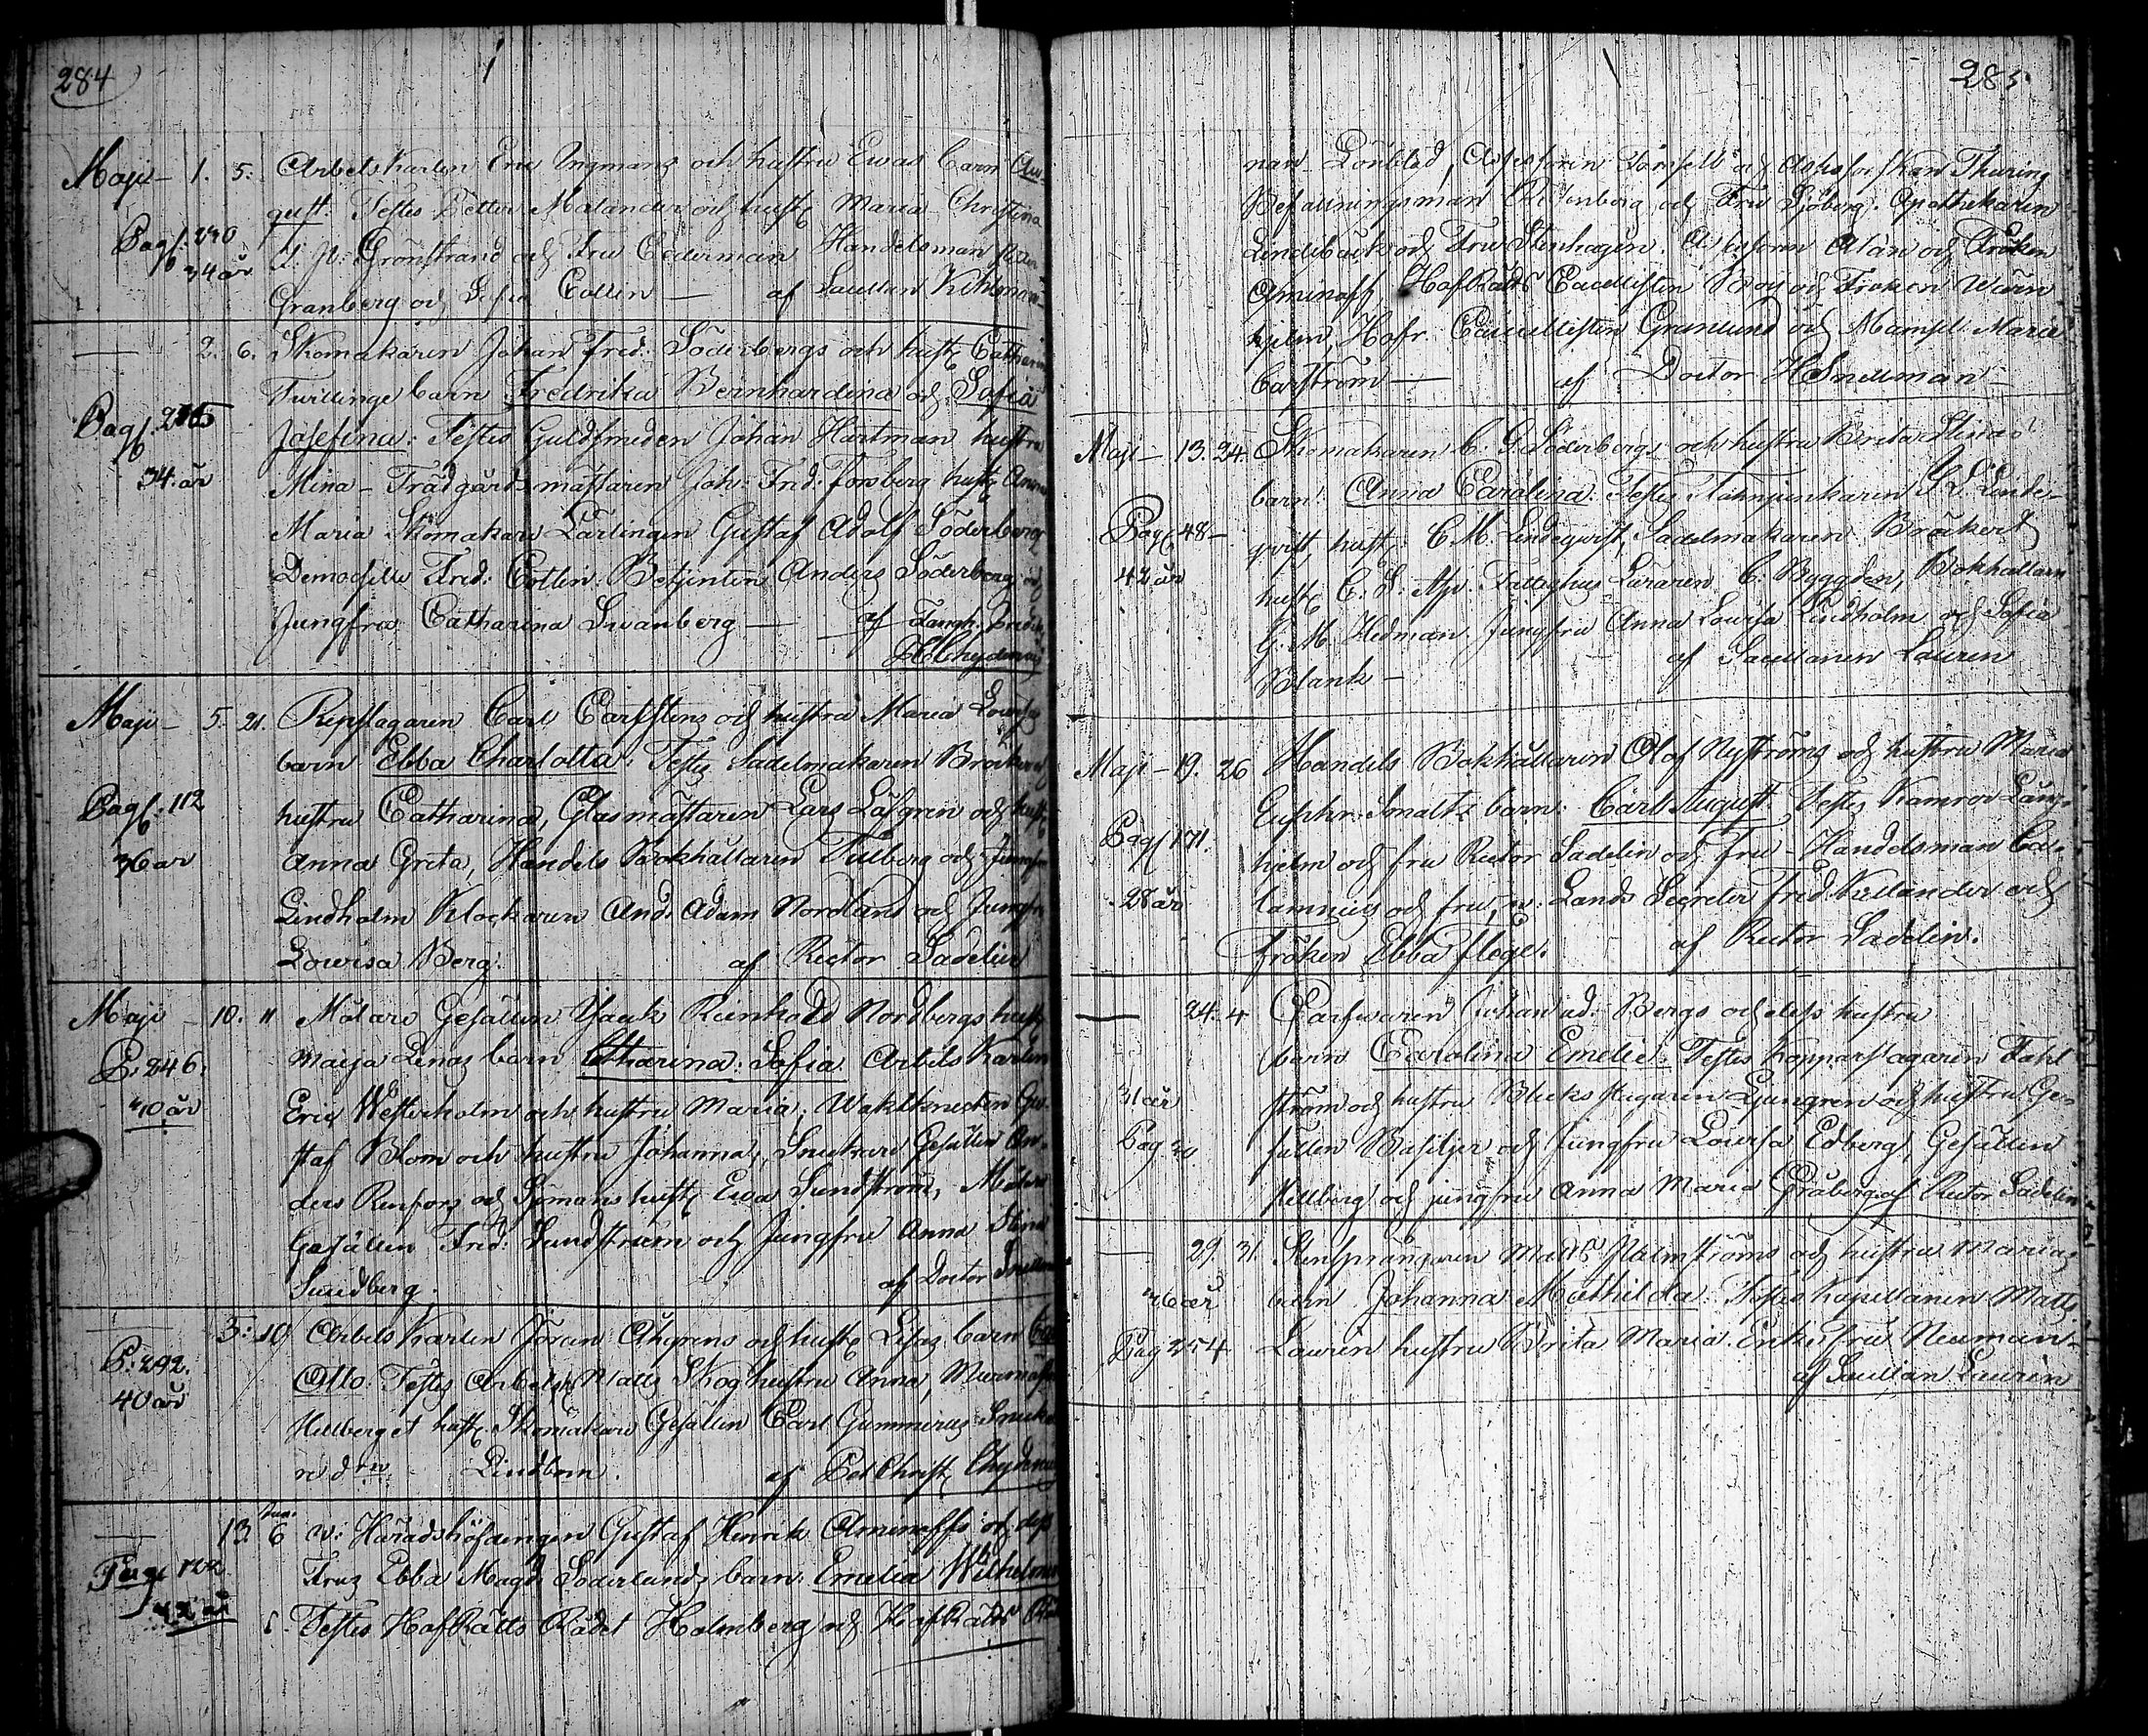 284
Maji - 1. 5. Arbetskarlen Eric Ingmans och hustru Ewas barn Au-
gust. Testes Petter Malander och hust. Maria Christina
Pag: 290
34 år
Grönstrand och Fru Cederman Handelsman
Granberg och Sofia Collin — af Sacellan Kihlman
— 2. 6. Skomakaren Johan Fred: Söderbergs och hust
Twillinge barn Fredrika Bernhardina och Sofia
Pag:
Josefina: Testes Guldsmeden Johan Hartman hustru
34 år
Mina - Trädgårdsmästaren Joh: Fred: Forsberg hust Anna
Maria Skomakare Lärlingen Gustaf Adolf Söderberg
Demoiselle Fred: Collin. Betjenten Anders Söderberg och
Jungfru Catharina Swanberg — af
Chydenius
Maji - 5. 21. Repslagaren Carl Carlstens och hustru Maria Lovisas
barn Ebba Charlotta: Testes Sadelmakaren Bröckert
Pag: 112
hustru Catharina, Glasmästaren Lars Löfgren och hust
36 år
Anna Greta, Handels Bokhållaren Tulberg och Jungfru
Lindholm Klockaren And: Adam Nordlund och Jungfru
Lowisa Berg. af Rector Sadelin
Maji - 10. 11 Målare Gesällen Isack Reinhold Nordbergs hust
P: 246.
Maja Lenas barn Catharina: Sofia. Arbets Karlen
40 år
Eric Westerholm och hustru Maria; Waktknecten Gu-
staf Blom och hustru Johanna; Snickare Gesällen An-
ders Renfors och Sjömans hust Ewa Sundström, Målare
Gesällen Fred: Sundström och Jungfru Anna Stina
Sundberg. af Doctor Snellman
— 3: 10 Arbets Karlen Jöran Åhgrens och hust Lisas barn
P: 292.
40 år
Otto. Testes Matts Skog hustru Anna,
Hellberg et hust. Skomakare Gesällen Carl Gummerus Snicka-
re Lindbom. af
— 13. Juni 6 v: Häradshöfdingen Gustaf Henrik Aminoffs och dess
Page
42 år
Frus Ebba Magd. Söderlunds barn. Emelia Wilhelmina
Testes HofRätts Rådet Holmberg och HofRätts
285
Befallningsman och Fru Sjöberg. Apothekaren
Lindebäck och Fru Stenhagen. Alan och Fröken
Aminoff, HofRätts Cancellisten Roy och Fröken Wärn
hjelm, Hofr. Cancellisten Granlund och Mamsell Maria
Carström — af Doctor HSnellman
Maji - 13. 24. Skomakaren C. G. Söderbergs och hustru Brita Stinas
barn: Anna Carolina: Testes Fältnjunkaren Linde-
Pag. 48 -
qvist, hust. C. M. Lindeqvist, Sadelmakaren Bröckert
42 år
hust C. S. Asp. Fattighus Läraren C. Byggden, Bokhållarn
G. M. Hedman. Jungfru Anna Lowisa Lindholm och Sofia
Blank - af Sacellanen Laurén
Maji - 19. 26 Handels Bokhållaren Olof Nyströms och hustru Maria
Euphr. Smaltz barn: Carl August. Testes Kamrer Lang-
Pag 171.
hjelm och fru Rector Sadelin och Fru - Handelsman Ca-
28 år
lamnius och fru, v: Lands Secreter Fred: Kellander och
Fröken Ebba Flege. af Rector Sadelin.
— 24. 4 Garfwaren Johan Ad: Bergs och dess hustru
barn Carolina Emelie. Testes Kopparslagaren Fahl
31 år
ström och hustru Blecksslagaren Ljungren och hustru Ge-
Pag 30
sällen Basilier och Jungfru Lowisa Edberg, Gesällen
Hellberg och jungfru Anna Maria Gråberg af Rector Sadelin
— 29. 31. Stensprängaren Matts Malmströms och hustru Marias
36 år
barn Johanna Mathilda. Testes Kapellanen Matts
Pag 254
Laurén hustru Brita Maria. Enkefru Neuman -
af Sacellan Laurén